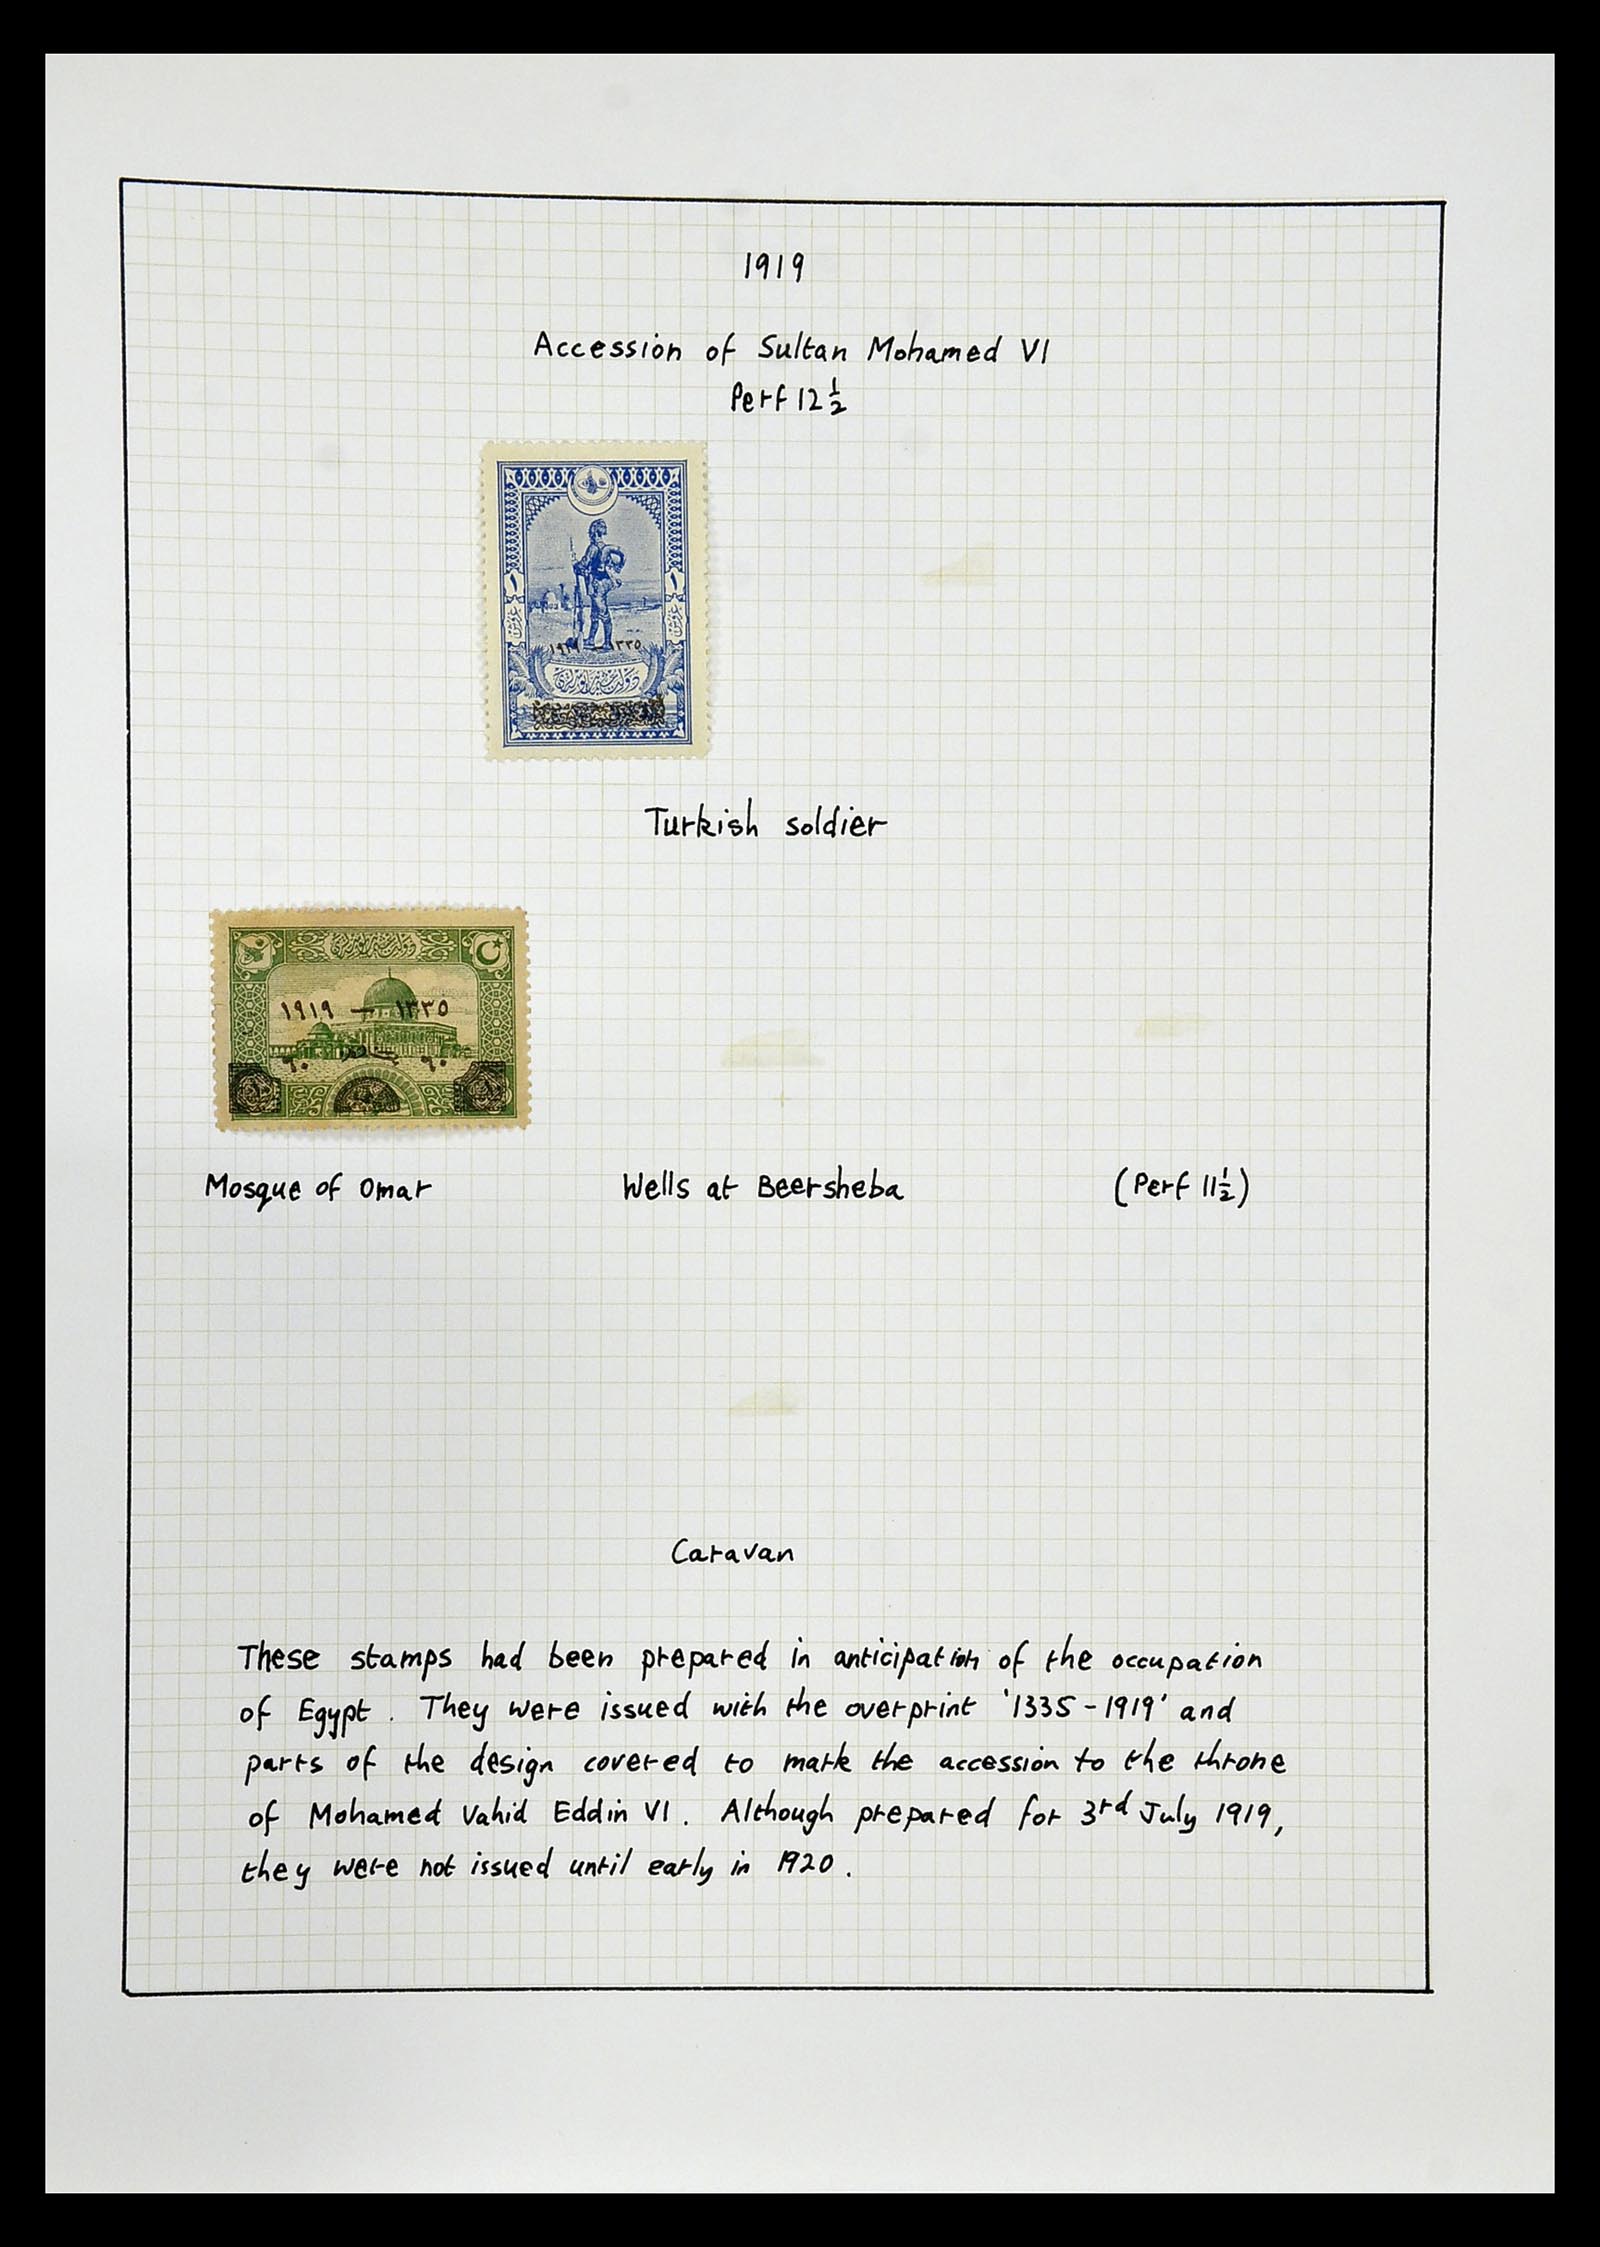 1919
Accession of Sultan Mohamed VI
Perf 12 1/2
١
١
غروش
غروش
١٩١٩ — ١٣٣٥
Turkish soldier
١٩١٩ — ١٣٣٥
٦٠ ٦٠
Mosque of Omar
Wells at Beersheba
(Perf 11 1/2)
Caravan
These stamps had been prepared in anticipation of the occupation
of Egypt. They were issued with the overprint '1335-1919' and
parts of the design covered to mark the accession to the throne
of Mohamed Vahid Eddin VI. Although prepared for 3rd July 1919,
they were not issued until early in 1920.